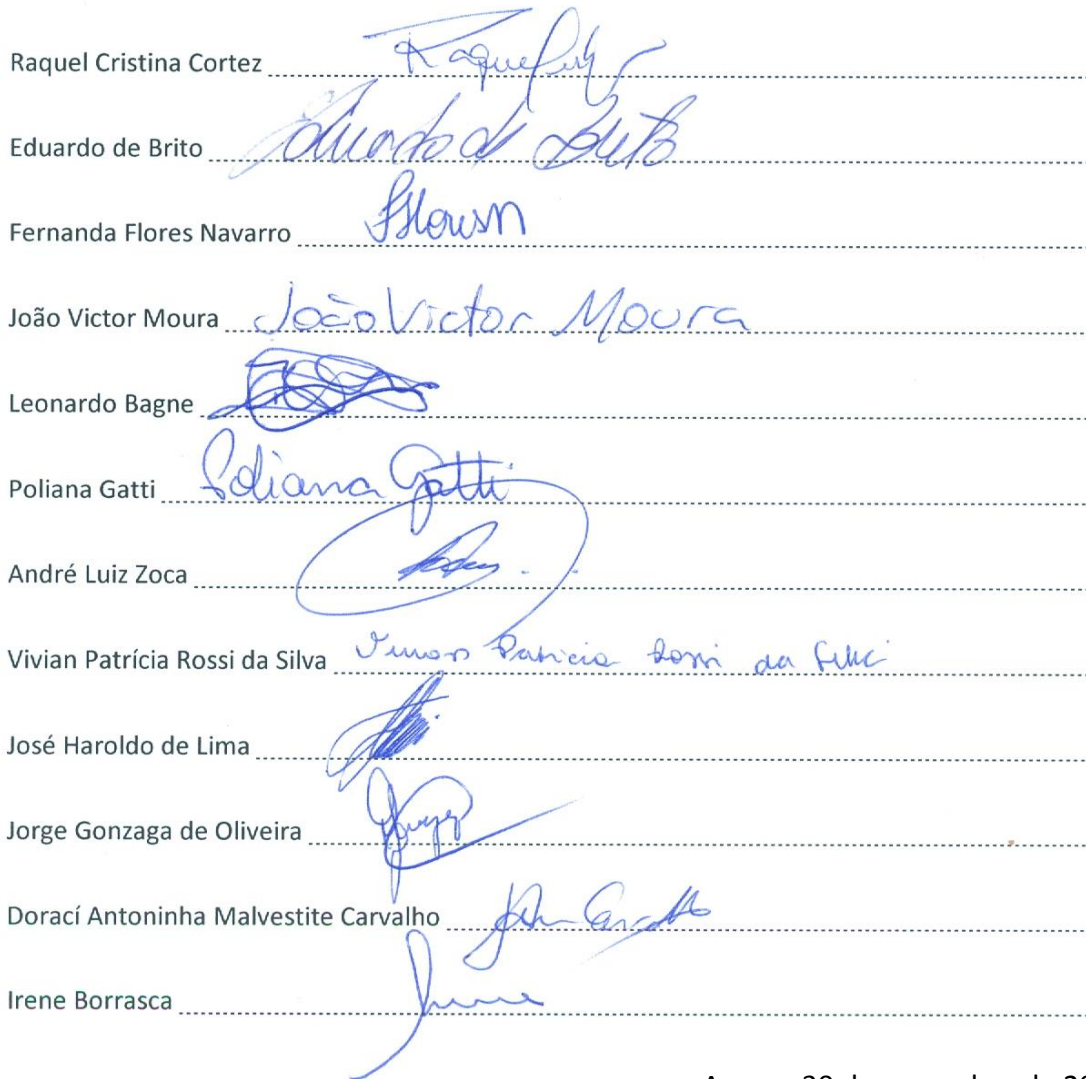 Raquel Cristina Cortez Raquel
Eduardo de Brito Eduardo de Brito
Fernanda Flores Navarro
João Victor Moura João Victor Moura
Leonardo Bagne
Poliana Gatti Poliana Gatti
André Luiz Zoca
Vivian Patrícia Rossi da Silva Vivian Patricia Rossi da Silva
José Haroldo de Lima
Jorge Gonzaga de Oliveira
Dorací Antoninha Malvestite Carvalho
Irene Borrasca Irene